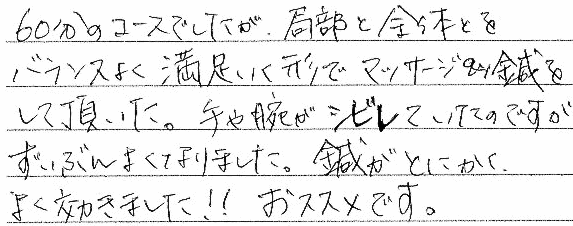 60分のコースでしたが、局部と全体とを
バランスよく満足いく形でマッサージ&鍼を
して頂いた。手や腕がシビレていたのですが
ずいぶんよくなりました。鍼がとにかく
よく効きました!! おススメです。